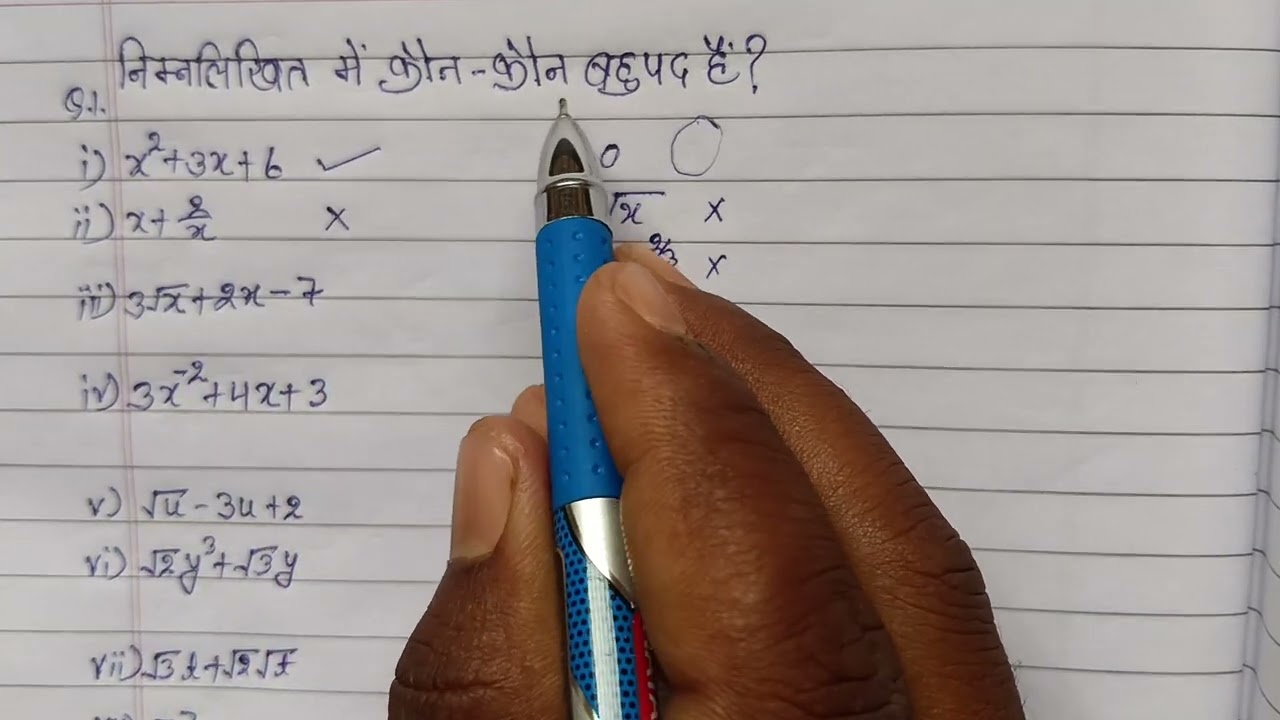 निम्नलिखित में कौन-कौन बहुपद हैं?
Q.1.
i) x²+3x+6 ✓ 0
ii) x+2/x × √x ×
2/3 ×
iii) 3√x+2x-7
iv) 3x⁻²+4x+3
v) √u-3u+2
vi) √2y³+√3y
vii) √3t+√2√t